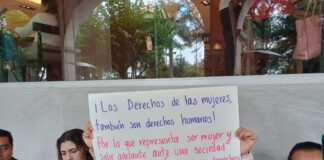 ¡Los Derechos de las mujeres,
también son derechos humanos!
Por lo que representa ser mujer y
salir adelante ante una sociedad
derechos